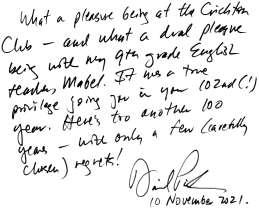 What a pleasure being at the Crichton
Club – and what a dual pleasure
being with my 9th grade English
teacher, Mabel. It was a true
privilege joing you in your 102nd(!)
year. Here's too another 100
years – with only a few (carefully
chosen) regrets!
10 November 2021.